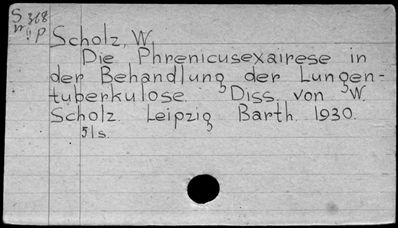 S 368
Scholz, W.
Die Phrenicusexairese in
der Behandlung der Lungen-
tuberkulose. Diss. von W.
Scholz. Leipzig Barth. 1930.
51s.